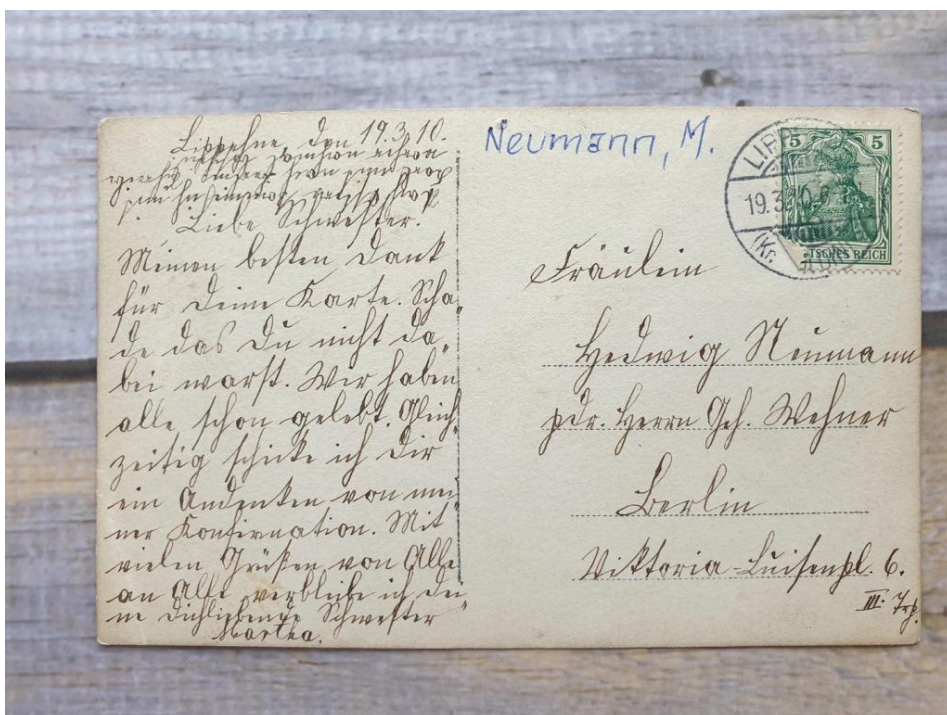 Lippehne, den 19.3.10.
Liebe Schwester.
Meinen besten Dank
für Deine Karte. Scha-
de das Du nicht da-
bei warst. Wir haben
alle schon gelebt. Gleich-
zeitig schicke ich Dir
ein Andenken von mei-
ner Konfirmation. Mit
vielen Grüßen von Alle
an Alle verbleibe ich Dei-
ne Dichliebende Schwester
Martha.
Neumann, M.
LIPP
19.3.10.6
(Kr.
5 5
TSCHES REICH
Fräulein
Hedwig Neumann
pdr. Herrn Geh. Wehner
Berlin
Viktoria-Luisenpl. 6.
III. Trp.